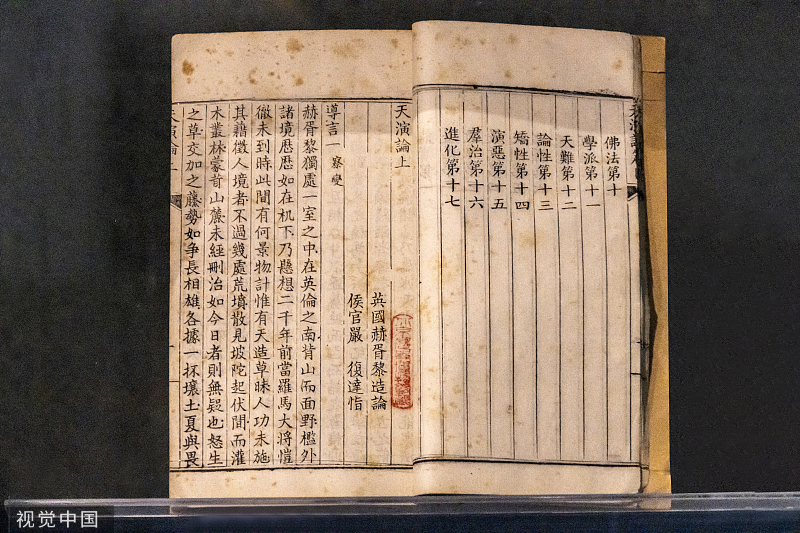 佛法第十
學派第十一
天難第十二
論性第十三
矯性第十四
演惡第十五
羣治第十六
進化第十七
天演論上
英國赫胥黎造論
侯官嚴 復達恉
導言一 察變
赫胥黎獨處一室之中在英倫之南背山而面野檻外
諸境歷歷如在机下乃懸想二千年前當羅馬大將愷
徹未到時此間有何景物計惟有天造草昧人功未施
其藉徵人境者不過幾處荒墳散見坡陀起伏間而灌
木叢林蒙茸山麓未經刪治如今日者則無疑也怒生
之草交加之藤勢如爭長相雄各據一抔壤土夏與畏
天演論
視觉中国